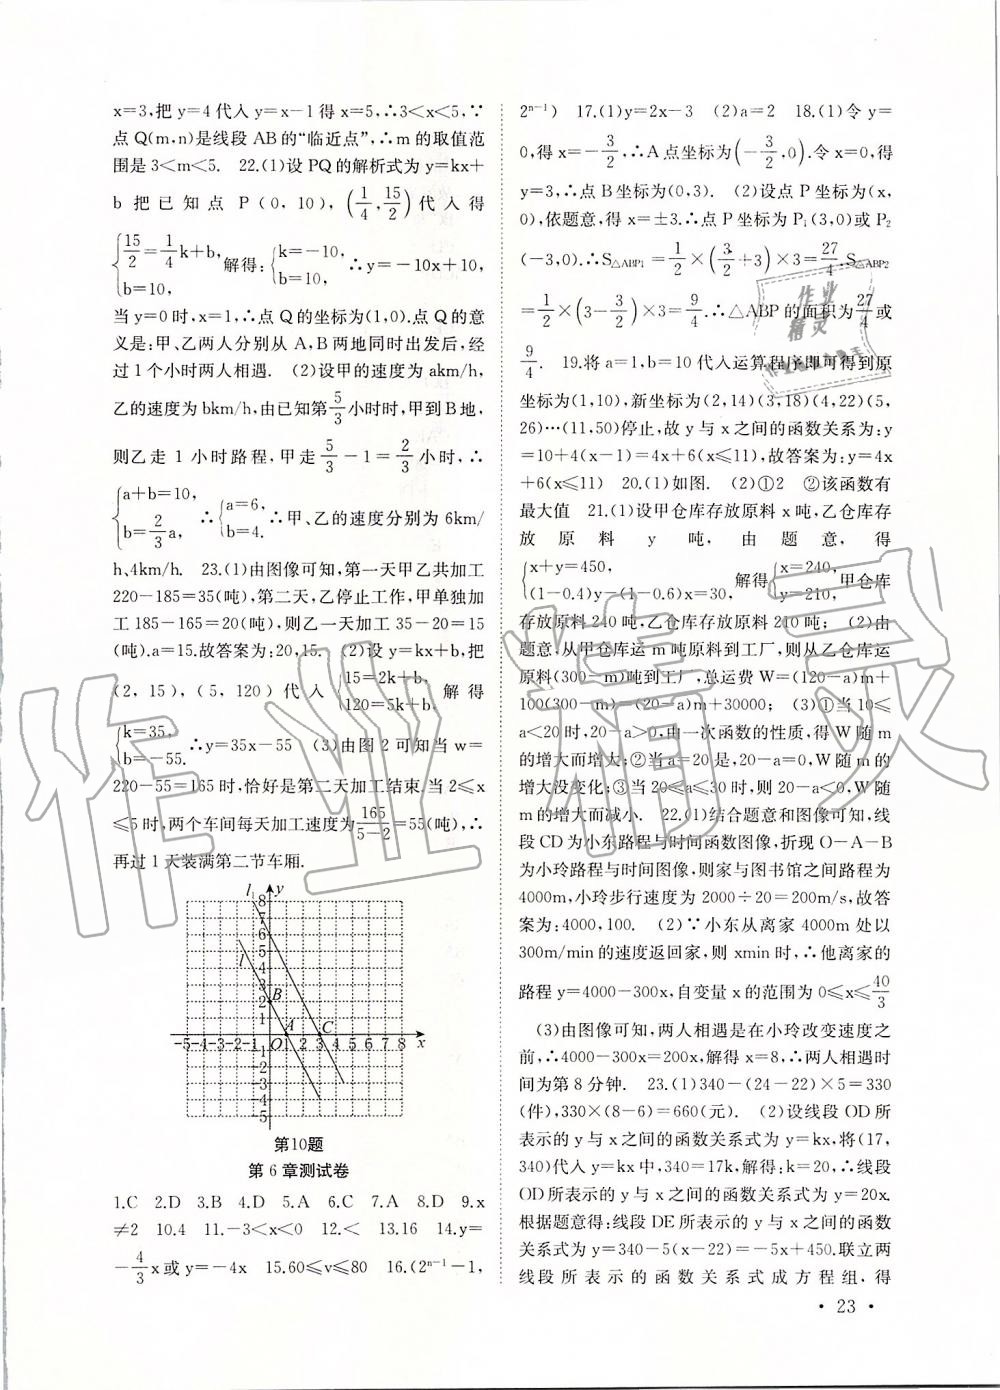 x=3,把 y=4 代入 y=x-1 得 x=5,∴3<x<5,∵
点 Q(m,n)是线段 AB 的“临近点”,∴m 的取值范
围是 3<m<5. 22.(1)设 PQ 的解析式为 y=kx+
b 把已知点 P(0,10),(1/4,15/2)代入得
{15/2=1/4k+b, b=10, 解得:{k=-10, b=10, ∴y=-10x+10,
当 y=0 时,x=1,∴点 Q 的坐标为(1,0).点 Q 的意
义是:甲、乙两人分别从 A,B 两地同时出发后,经
过 1 个小时两人相遇. (2)设甲的速度为 akm/h,
乙的速度为 bkm/h,由已知第 5/3 小时时,甲到 B 地,
则乙走 1 小时路程,甲走 5/3-1=2/3 小时,∴
{a+b=10, b=2/3a, ∴{a=6, b=4. ∴甲、乙的速度分别为 6km/
h、4km/h. 23.(1)由图像可知,第一天甲乙共加工
220-185=35(吨),第二天,乙停止工作,甲单独加
工 185-165=20(吨),则乙一天加工 35-20=15
(吨).a=15.故答案为:20,15. (2)设 y=kx+b,把
(2,15),(5,120)代入{15=2k+b, 120=5k+b. 解得
{k=35, b=-55. ∴y=35x-55 (3)由图 2 可知当 w=
220-55=165 时,恰好是第二天加工结束.当 2≤x
≤5 时,两个车间每天加工速度为 165/(5-2)=55(吨),∴
再过 1 天装满第二节车厢.
l₁ y
8
7
6
5
4
3
2 B
1
l
-5-4-3-2-1 O 1 2 3 4 5 6 7 8 x
A C
-1
-2
-3
-4
-5
第10题
第 6 章测试卷
1.C 2.D 3.B 4.D 5.A 6.C 7.A 8.D 9.x
≠2 10.4 11.-3<x<0 12.< 13.16 14.y=
-4/3x 或 y=-4x 15.60≤v≤80 16.(2ⁿ⁻¹-1,
2ⁿ⁻¹) 17.(1)y=2x-3 (2)a=2 18.(1)令 y=
0,得 x=-3/2,∴A 点坐标为(-3/2,0).令 x=0,得
y=3,∴点 B 坐标为(0,3). (2)设点 P 坐标为(x,
0),依题意,得 x=±3.∴点 P 坐标为 P₁(3,0)或 P₂
(-3,0).∴S△ABP₁=1/2×(3/2+3)×3=27/4.S△ABP₂
=1/2×(3-3/2)×3=9/4.∴△ABP 的面积为 27/4 或
9/4. 19.将 a=1,b=10 代入运算程序即可得到原
坐标为(1,10),新坐标为(2,14)(3,18)(4,22)(5,
26)…(11,50)停止,故 y 与 x 之间的函数关系为:y
=10+4(x-1)=4x+6(x≤11),故答案为:y=4x
+6(x≤11) 20.(1)如图. (2)①2 ②该函数有
最大值 21.(1)设甲仓库存放原料 x 吨,乙仓库存
放原料 y 吨,由题意,得
{x+y=450, (1-0.4)y-(1-0.6)x=30, 解得{x=240, y=210, 甲仓库
存放原料 240 吨,乙仓库存放原料 210 吨; (2)由
题意,从甲仓库运 m 吨原料到工厂,则从乙仓库运
原料(300-m)吨到工厂,总运费 W=(120-a)m+
100(300-m)=(20-a)m+30000; (3)①当 10≤
a<20 时,20-a>0,由一次函数的性质,得 W 随 m
的增大而增大;②当 a=20 是,20-a=0,W 随 m 的
增大没变化;③当 20≤a≤30 时,则 20-a<0,W 随
m 的增大而减小. 22.(1)结合题意和图像可知,线
段 CD 为小东路程与时间函数图像,折现 O-A-B
为小玲路程与时间图像,则家与图书馆之间路程为
4000m,小玲步行速度为 2000÷20=200m/s,故答
案为:4000,100. (2)∵小东从离家 4000m 处以
300m/min 的速度返回家,则 xmin 时,∴他离家的
路程 y=4000-300x,自变量 x 的范围为 0≤x≤40/3
(3)由图像可知,两人相遇是在小玲改变速度之
前,∴4000-300x=200x,解得 x=8,∴两人相遇时
间为第 8 分钟. 23.(1)340-(24-22)×5=330
(件),330×(8-6)=660(元). (2)设线段 OD 所
表示的 y 与 x 之间的函数关系式为 y=kx,将(17,
340)代入 y=kx 中,340=17k,解得:k=20,∴线段
OD 所表示的 y 与 x 之间的函数关系式为 y=20x.
根据题意得:线段 DE 所表示的 y 与 x 之间的函数
关系式为 y=340-5(x-22)=-5x+450.联立两
线段所表示的函数关系式成方程组,得
· 23 ·
作业精灵
作业
精灵